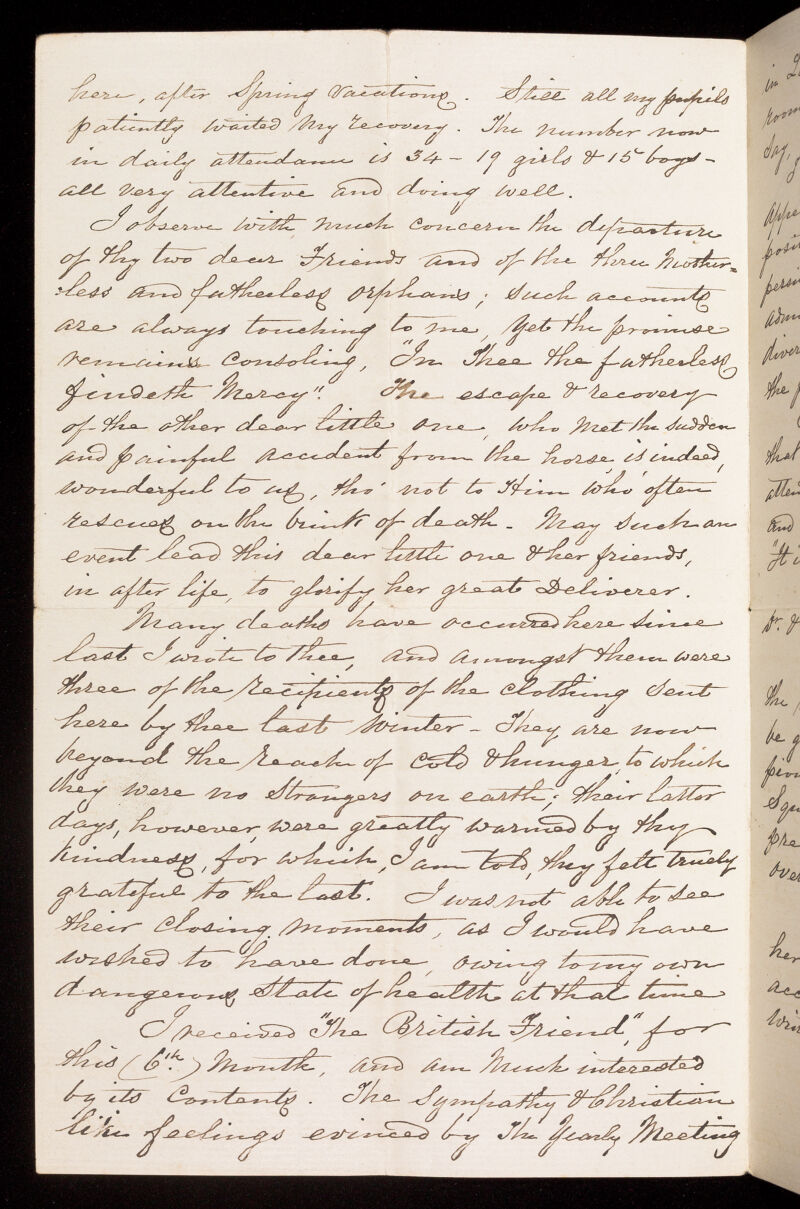 here, after Spring Vacations. Still all my pupils
patiently waited my recovery. The number now
in daily attendance is 34 - 19 girls & 15 boys -
all very attentive and doing well.
I observe with much concern the departure
of thy two dear Friends and of the three Mother=
=less and fatherless orphans; such accounts
are always touching to me, yet the promise
remains consoling, "In Thee the fatherless
findeth Mercy". The escape & recovery
of the other dear little one, who met the sudden
and painful accident from the horse, is indeed,
wonderful to us, tho' not to Him who often
rescues on the brink of death. May such an
event lead this dear little one & her friends,
in after life, to glorify her great Deliverer.
Many deaths have occurred here since
last I wrote to thee, and amongst them were
three of the recipients of the clothing sent
here by thee last Winter - They are now
beyond the reach of cold & hunger, to which
they were no strangers on earth; their latter
days, however, were greatly warmed by thy
kindness, for which, I am told, they felt truely
grateful to the last. I was not able to see
their closing moments, as I would have
wished to have done, owing to my own
dangerous state of health at that time
I received "The British Friend", for
this (6th.) Month, and am much interested
by its contents. The Sympathy & Christian
like feelings evinced by The Yearly Meeting
in
room
Say,
appe
posi
pers
adm
diver
the
that
atten
and
"It i
Dr. &
the
be g
Squ
pre
over
her
acc